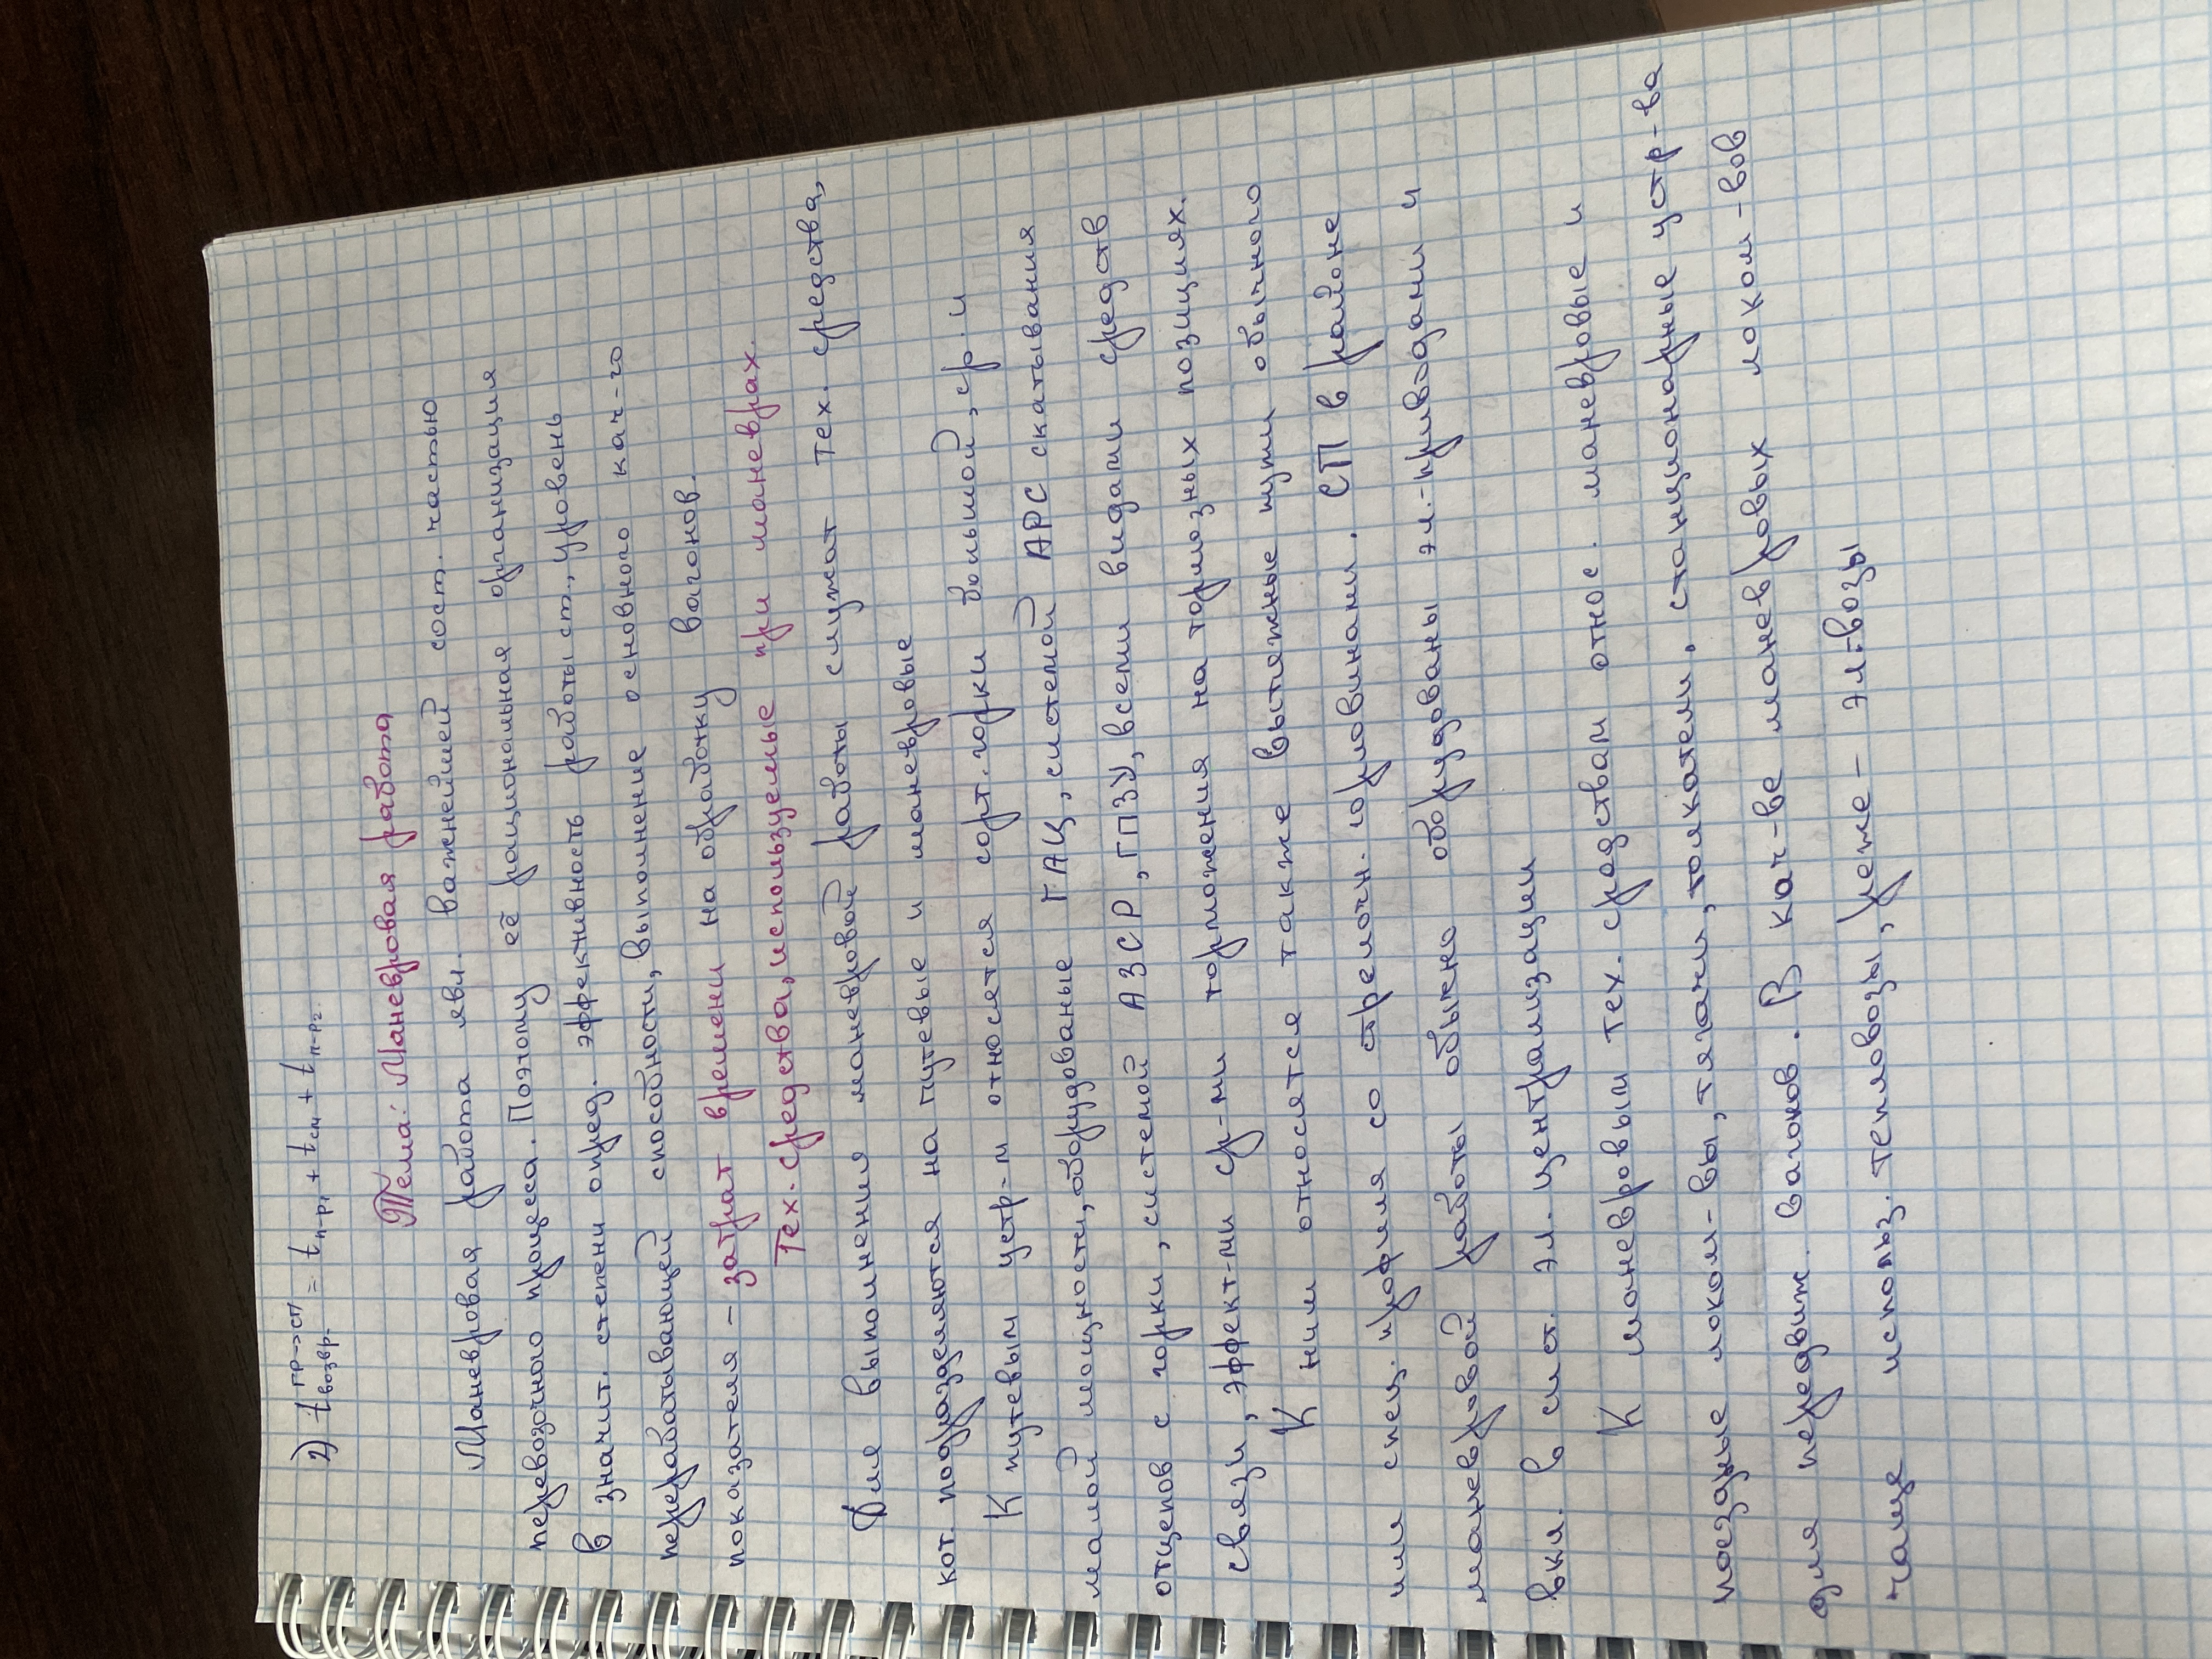 2) t возвр.^ПР→СП = t п-р1 + t см + t п-р2.
Тема: Маневровая работа
Маневровая работа явл. важнейшей сост. частью
перевозочного процесса. Поэтому её рациональная организация
в значит. степени опред. эффективность работы ст., уровень
перерабатывающей способности, выполнение основного кач-го
показателя – затрат времени на обработку вагонов.
Тех. средства, используемые при маневрах.
Для выполнения маневровой работы служат тех. средства,
кот. подразделяются на путевые и маневровые
К путевым устр-м относятся сорт. горки большой, ср. и
малой мощности, оборудованые ГАЦ, системой АРС скатывания
отцепов с горки, системой АЗСР, ГПЗУ, всеми видами средств
связи, эффект-ми ср-ми торможения на тормозных позициях.
К ним относятся также вытяжные пути обычного
или спец. профиля со стрелочн. горловинами. СП в районе
маневровой работы обычно оборудованы эл.-приводами и
вкл. в сист. эл. централизации
К маневровым тех. средствам относ. маневровые и
поездные локом-вы, тягачи, толкатели, стационарные устр-ва
для передвиж. вагонов. В кач-ве маневровых локом-вов
чаще использ. тепловозы, реже – эл-возы